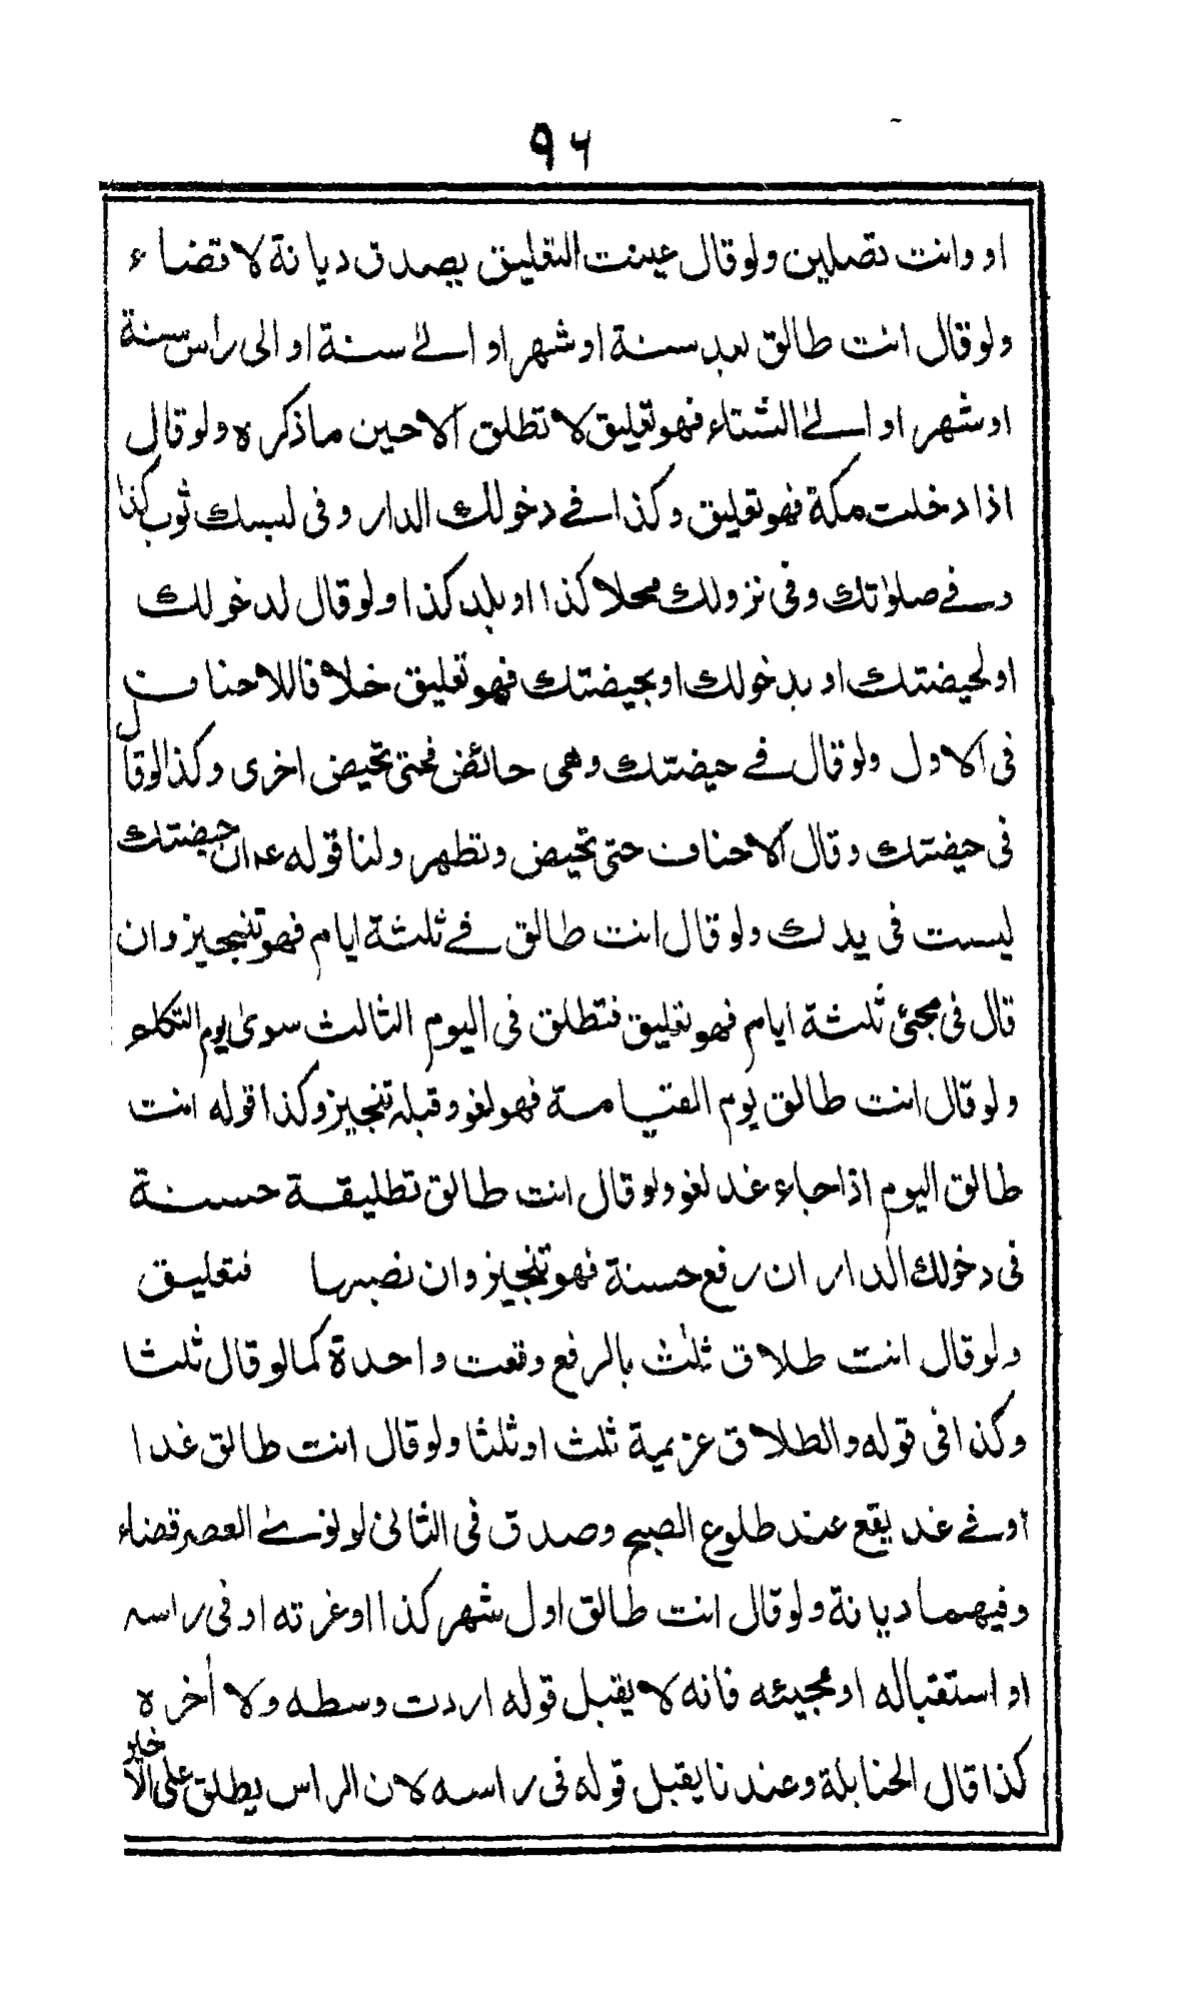 ٩٦
او وانت تصلين ولو قال عينت التعليق يصدق ديانة لا قضاء
ولو قال انت طالق بعد سنة او شهر او الى سنة او الى راس سنة
او شهر او الى الشتاء فهو تعليق لا تطلق الا حين ما ذكره ولو قال
اذا دخلت مكة فهو تعليق وكذا فى دخولك الدار وفى لبسك ثوب كذا
وفى صلوٰتك وفى نزولك محلا كذا او بلد كذا ولو قال لدخولك
او لحيضتك او بدخولك او بحيضتك فهو تعليق خلافا للاحناف
فى الاول ولو قال فى حيضتك وهى حائض فحتى تحيض اخرى وكذا لو قال
فى حيضتك وقال الاحناف حتى تحيض وتطهر ولنا قوله عم ان حيضتك
ليست فى يدك ولو قال انت طالق فى ثلثة ايام فهو تنجيز وان
قال فى مجئ ثلثة ايام فهو تعليق فتطلق فى اليوم الثالث سوى يوم التكلم
ولو قال انت طالق يوم القيامة فهو لغو وقبله تنجيز وكذا قوله انت
طالق اليوم اذا جاء غد لغو ولو قال انت طالق تطليقة حسنة
فى دخولك الدار ان رفع حسنة فهو تنجيز وان نصبها فتعليق
ولو قال انت طلاق ثلث بالرفع وقعت واحدة كما لو قال ثلثا
وكذا فى قوله والطلاق عزيمة ثلث او ثلثا ولو قال انت طالق غدا
او فى غد يقع عند طلوع الصبح وصدق فى الثانى لو نوى العصر قضاء
وفيهما ديانة ولو قال انت طالق اول شهر كذا او غرته او فى راسه
او استقباله او مجيئه فانه لا يقبل قوله اردت وسطه ولا أخره
كذا قال الحنابلة وعندنا يقبل قوله فى راسه لان الراس يطلق على الاخير